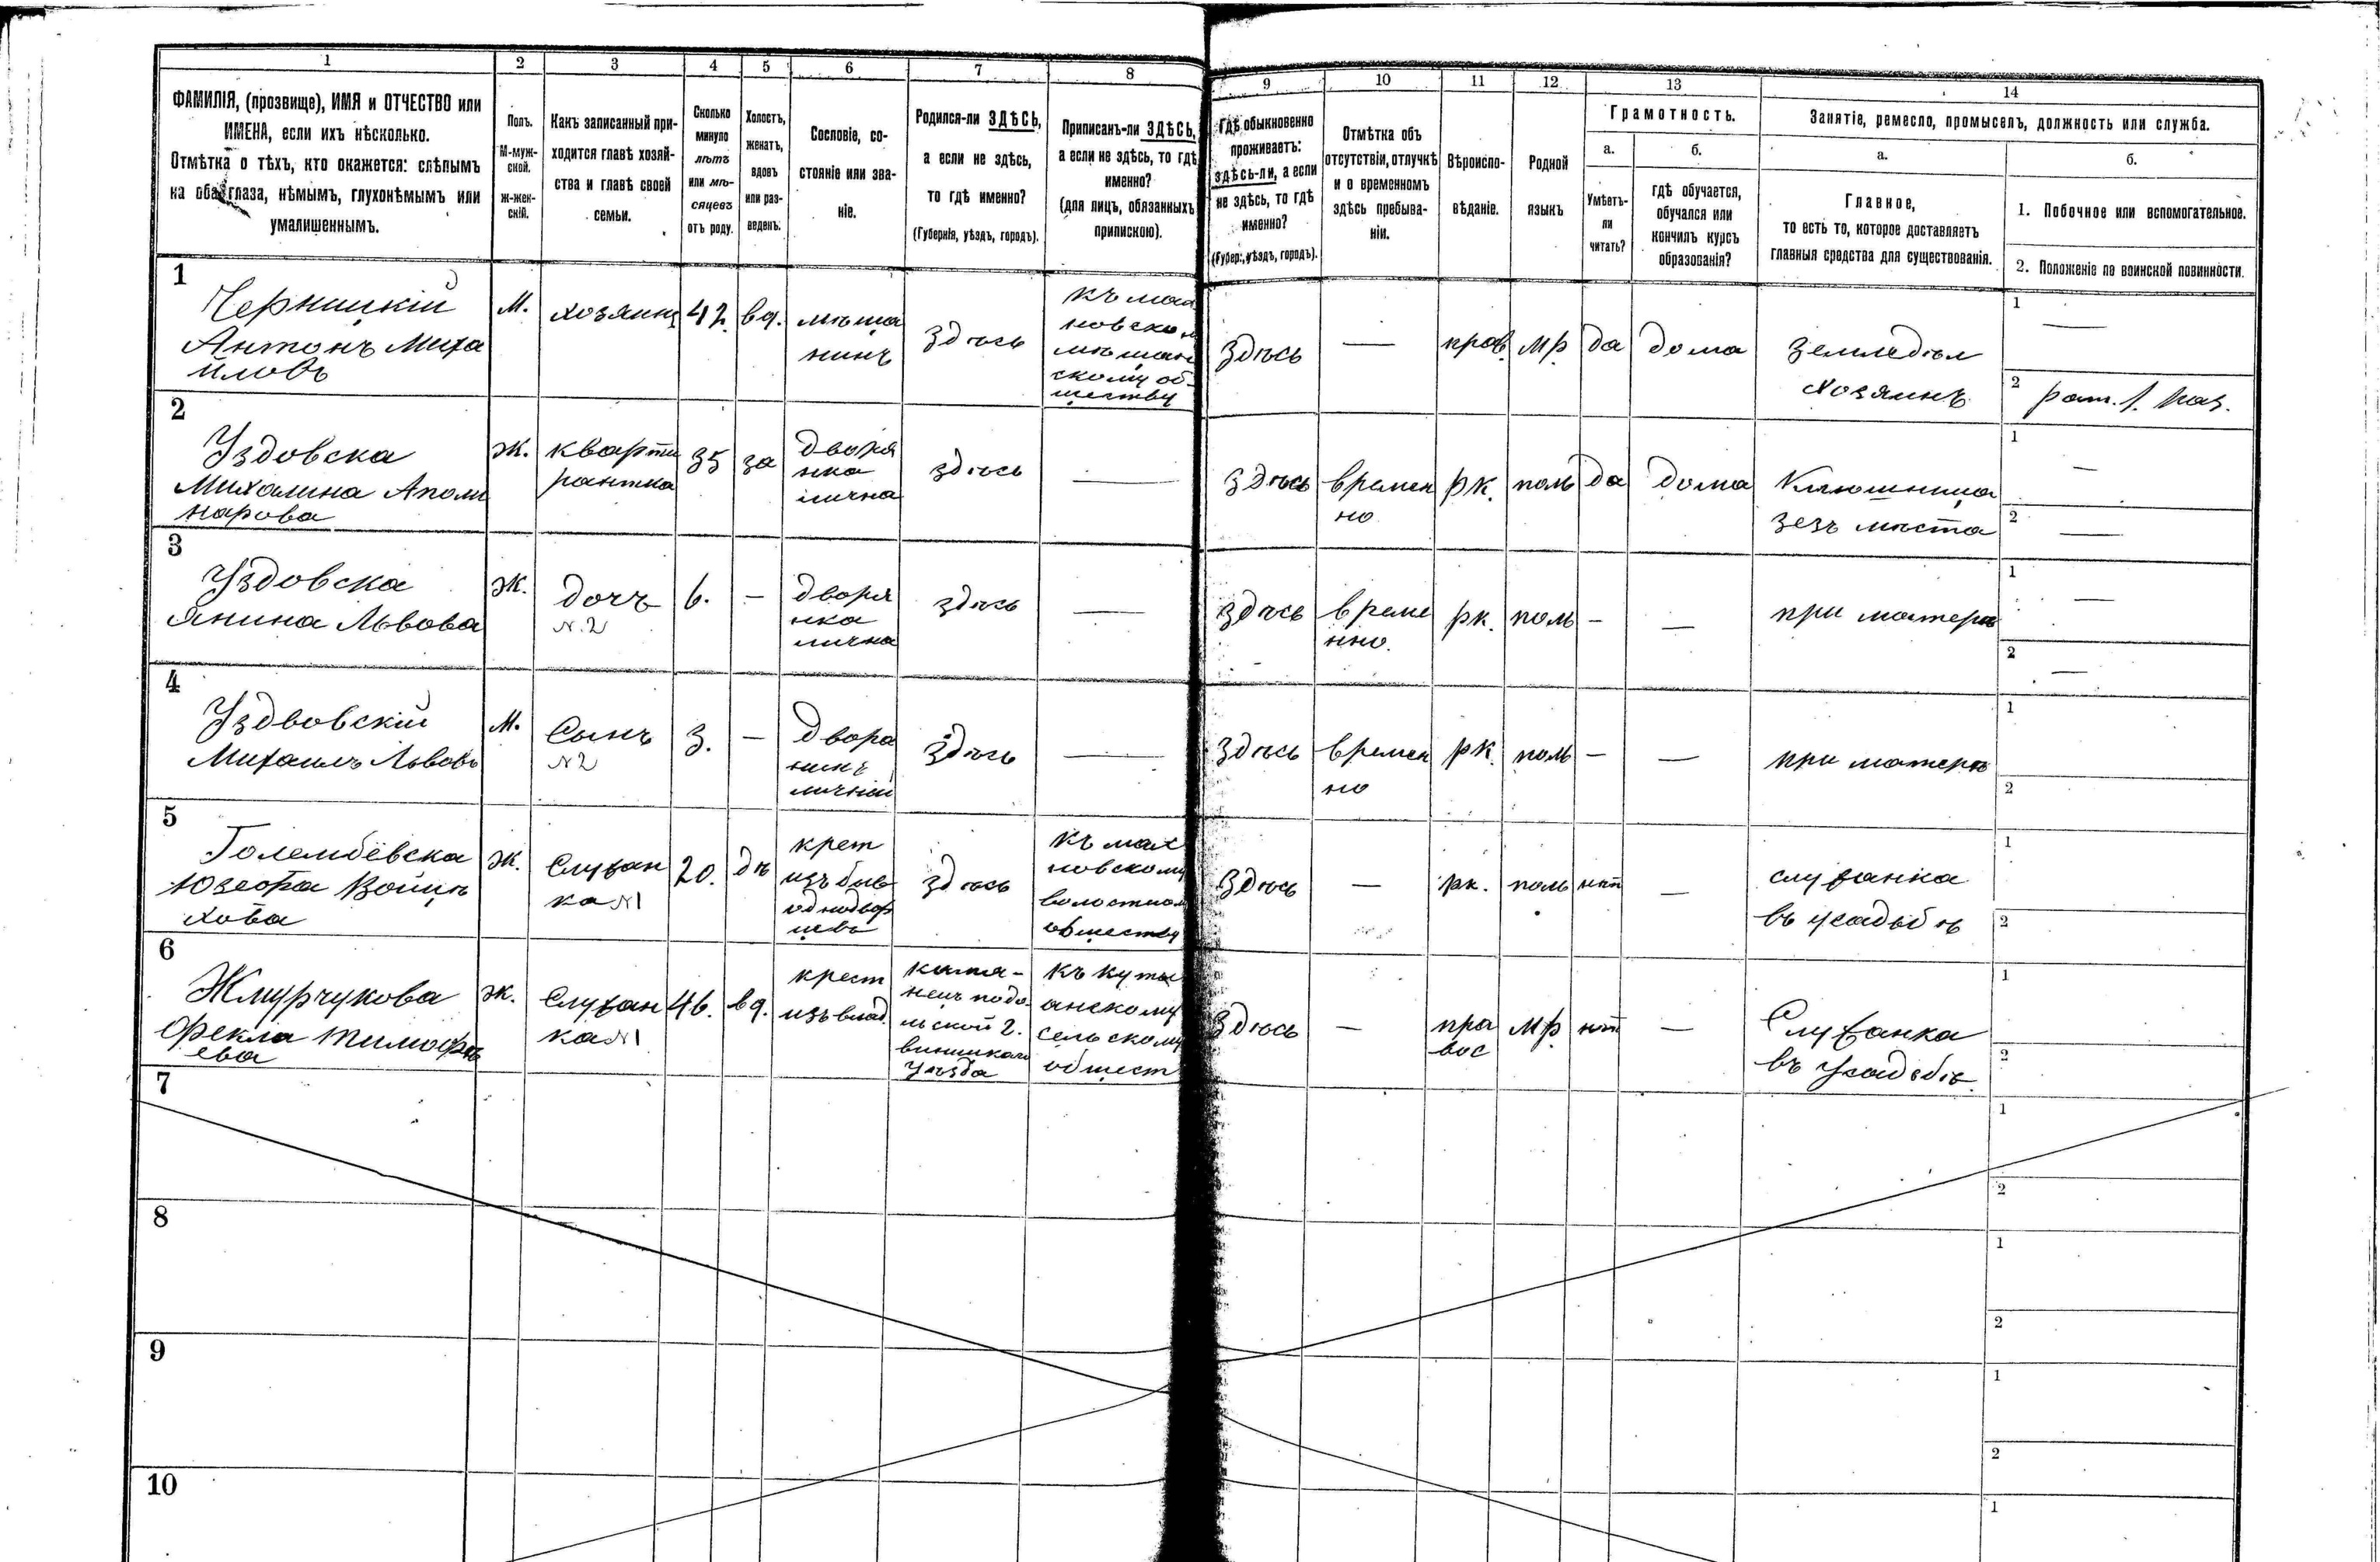 1 2 3 4 5 6 7 8 9 10 11 12 13 14
ФАМИЛІЯ, (прозвище), ИМЯ и ОТЧЕСТВО или
ИМЕНА, если ихъ нѣсколько.
Отмѣтка о тѣхъ, кто окажется: слѣпымъ
на оба глаза, нѣмымъ, глухонѣмымъ или
умалишеннымъ.
Полъ.
М-муж-
ской.
ж-жен-
скій.
Какъ записанный при-
ходится главѣ хозяй-
ства и главѣ своей
семьи.
Сколько
минуло
лѣтъ
или мѣ-
сяцевъ
отъ роду.
Холостъ,
женатъ,
вдовъ
или раз-
веденъ.
Сословіе, со-
стояніе или зва-
ніе.
Родился-ли ЗДѢСЬ,
а если не здѣсь,
то гдѣ именно?
(Губернія, уѣздъ, городъ).
Приписанъ-ли ЗДѢСЬ,
а если не здѣсь, то гдѣ
именно?
(для лицъ, обязанныхъ
припискою).
Гдѣ обыкновенно
проживаетъ:
здѣсь-ли, а если
не здѣсь, то гдѣ
именно?
(Губер., уѣздъ, городъ).
Отмѣтка объ
отсутствіи, отлучкѣ
и о временномъ
здѣсь пребыва-
ніи.
Вѣроиспо-
вѣданіе.
Родной
языкъ
Грамотность.
а.
Умѣетъ-
ли
читать?
б.
гдѣ обучается,
обучался или
кончилъ курсъ
образованія?
Занятіе, ремесло, промыселъ, должность или служба.
а.
Главное,
то есть то, которое доставляетъ
главныя средства для существованія.
б.
1. Побочное или вспомогательное.
2. Положеніе по воинской повинности.
1
Черницкій
Антонъ Миха
йловъ
М.
хозяинъ
42.
вд.
мѣща
нинъ
здѣсь
къ мах
новском
мѣщан
скому об-
ществу
здѣсь
—
прав.
мр
да
дома
земледѣл
хозяинъ
1
—
2
рат. 1. раз.
2
Уздовска
Михалина Аполи
нарова
ж.
кварти
рантка
35
за
дворя
нка
лична
здѣсь
—
здѣсь
времен
но
рк.
поль
да
дома
Ключница
безъ мѣста
1
—
2
—
3
Уздовска
Янина Львова
ж.
дочъ
N.2
6.
—
дворя
нка
лична
здѣсь
—
здѣсь
време
нно.
рк.
поль
—
—
при матерѣ
1
—
2
—
4
Уздвовскій
Михаилъ Львовъ
М.
Сынъ
N2
3.
—
Двора
нинъ
личній
здѣсь
—
здѣсь
времен
но
рк.
поль
—
—
при матерѣ
1
2
5
Голембевска
Юзефа Войцѣ
хова
ж.
Служан
ка N1
20.
дѣ
крет
изъ быв
однодвор
цевъ
здѣсь
къ мах
новскому
волостном
обществу
здѣсь
—
рк.
поль
нѣт
—
служанка
въ усадьбѣ
1
2
6
Жмурчукова
Фекла Тимофѣ
ева
ж.
Служан
ка N1
46.
вд.
крест
изъ влад.
подо-
льской г.
винницкаго
Уѣзда
къ
сельскому
общест
здѣсь
—
пра
вос
мр
нѣт
—
Служанка
въ Усадьбѣ.
1
2
7
1
2
8
1
2
9
1
2
10
1